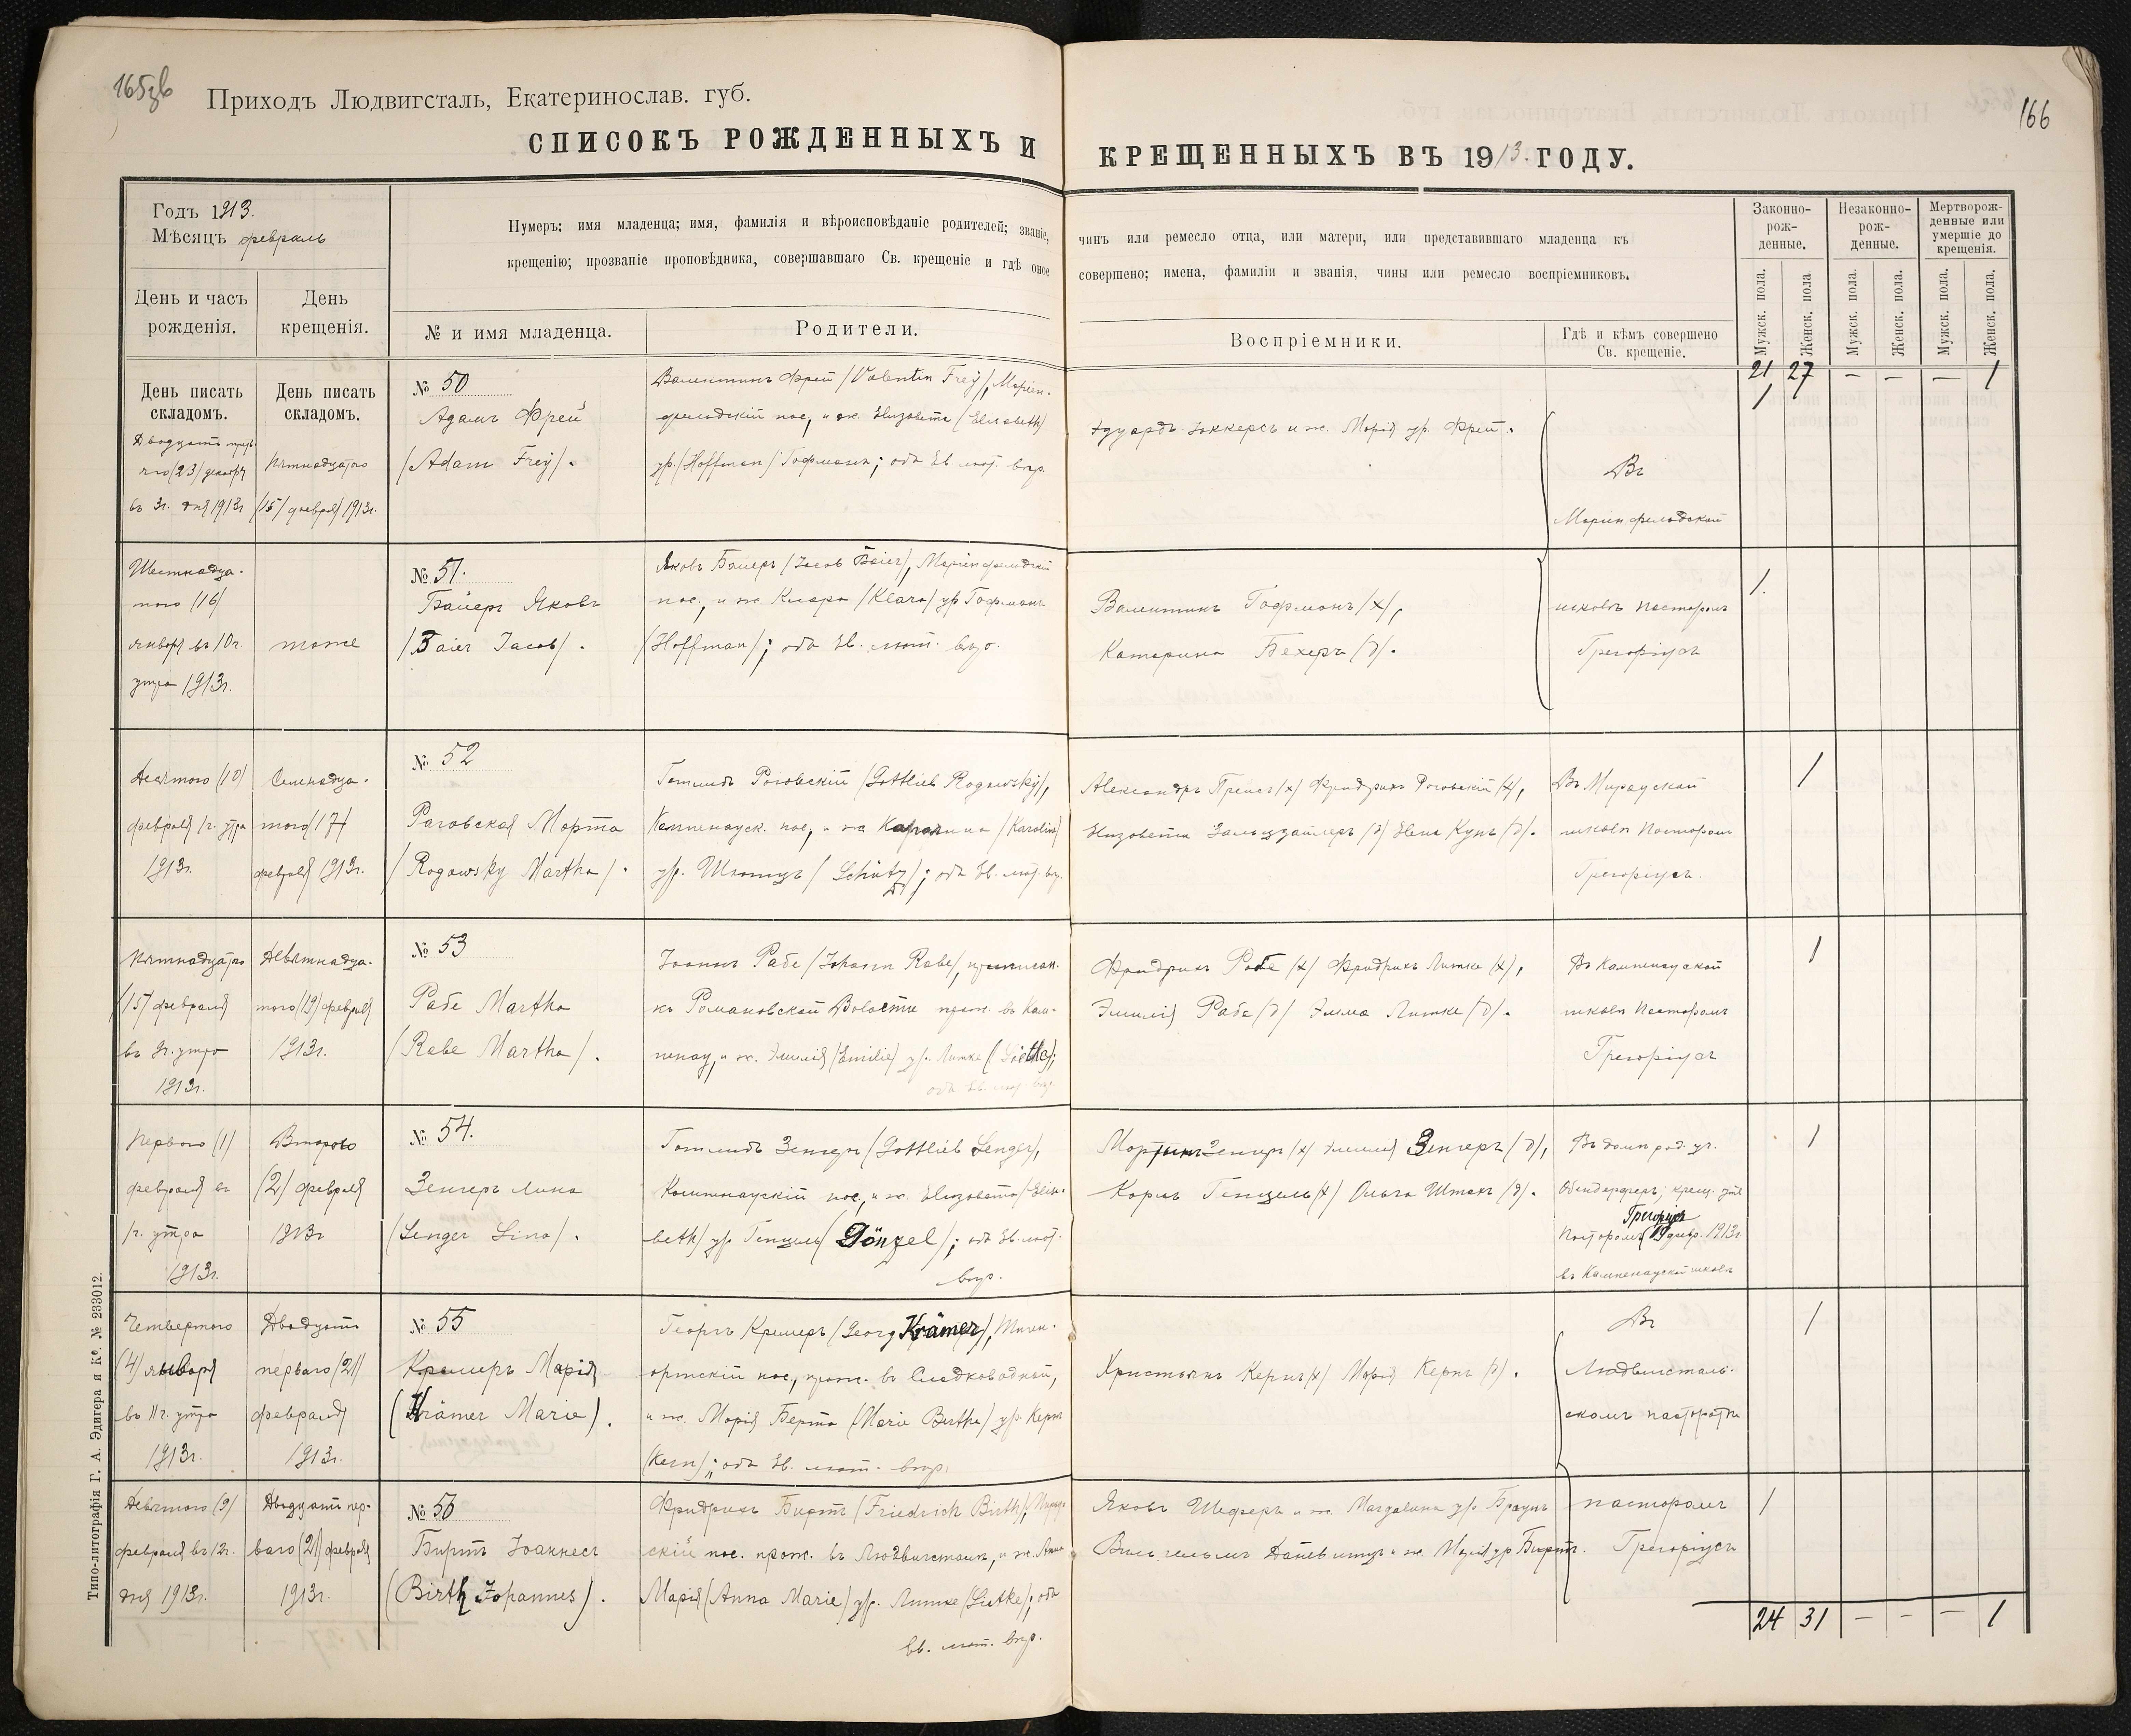 165об
Приходъ Людвигсталь, Екатеринослав. губ.
166
СПИСОКЪ РОЖДЕННЫХЪ И КРЕЩЕННЫХЪ ВЪ 1913. ГОДУ.
Годъ 1913.
Мѣсяцъ февраль
Нумеръ; имя младенца; имя, фамилія и вѣроисповѣданіе родителей; званіе, чинъ или ремесло отца, или матери, или представившаго младенца къ
крещенію; прозваніе проповѣдника, совершавшаго Св. крещеніе и гдѣ оное совершено; имена, фамиліи и званія, чины или ремесло воспріемниковъ.
Законно-
рож-
денные.
Незаконно-
рож-
денные.
Мертворож-
денные или
умершіе до
крещенія.
День и часъ
рожденія.
День
крещенія.
№ и имя младенца.
Родители.
Воспріемники.
Гдѣ и кѣмъ совершено
Св. крещеніе.
Мужск. пола.
Женск. пола
Мужск. пола.
Женск. пола.
Мужск. пола.
Женск. пола.
21 27 — — — 1
День писать
складомъ.
День писать
складомъ.
(23) декабря
въ 3ч. дня 1913г
Пятнадцатаго
(15) февраля 1913г.
№ 50
Адамъ Фрей
(Adam Frey).
Валентинъ Фрей (Valentin Frey), Маріен-
фельдскій пос., и ж. Елизавета (Elisabeth)
ур. (Hoffman) Гофманъ; оба Ев. лют. вѣр.
Эдуардъ Іоккерсъ и ж. Марія ур. Фрей.
Въ
Маріенфельдской
1
Шестнадца-
таго (16)
января въ 10ч.
утра 1913г.
тоже
№ 51.
Байеръ Яковъ
(Baier Jacob).
Яковъ Байеръ (Jacob Baier), Маріенфельдскій
пос., и ж. Клара (Klara) ур. Гофманъ
(Hoffman); оба Ев. лют. вѣр.
Валентинъ Гофманъ (х),
Катарина Бехеръ (д).
школѣ Пасторомъ
Грегоріусъ
1.
Десятого (10)
февраля 1ч. утра
1913г.
Семнадца-
таго (17)
февраля 1913г.
№ 52
Раговская Марта
(Rogowsky Martha).
Готлибъ Роговскій (Gottlieb Rogowsky),
Каппенауск. пос., и жа Каролина (Karolina)
ур. Шютцъ (Schütz); оба Ев. лют. вѣр.
Александръ Прейсъ (х) Фридрихъ Роговскій (х),
Елизавета Зальцзайлеръ (д) Елена Кунъ (д).
Въ Мирауской
школѣ Пасторомъ
Грегоріусъ.
1
Пятнадцатаго
(15) февраля
въ 9ч. утра
1913г.
Девятнадца-
таго (19) февраля
1913г.
№ 53
Рабе Martha
(Rabe Martha).
Іоаннъ Рабе (Johann Rabe), приписан.
къ Романовской Волости прож. въ Кам-
пенау, и ж. Эмилія (Emilie) ур. Литке (Liethke);
оба Ев. лют. вѣр.
Фридрихъ Рабе (х) Фридрихъ Литке (х),
Эмилія Рабе (д) Эмма Литке (д).
Въ Кампенауской
школѣ Пасторомъ
Грегоріусъ
1
Перваго (1)
февраля въ
1ч. утра
1913г.
Второго
(2) февраля
1913г
№ 54.
Зенгеръ Лина
(Senger Lina).
Готлибъ Зенгеръ (Gottlieb Senger),
Кампенаускій пос., и ж. Елизавета (Elisa-
beth) ур. Генцель (Gönzel); оба Ев. лют.
вѣр.
Мартынъ Зенгеръ (х) Эмилія Зенгеръ (д),
Карлъ Генцель (х) Ольга Штакъ (д).
Въ домѣ род. уч.
крещ. утв
Грегоріусъ
Пасторомъ (19) февр. 1913г
въ Кампенауской школѣ
1
Четвертаго
(4) января
въ 11ч. утра
1913г.
Двадцать
перваго (21)
февраля
1913г.
№ 55
Кремеръ Марія
(Krämer Marie).
Георгъ Кремеръ (Georg Krämer), Тиген-
ортскій пос., прож. въ Сладководной,
и ж. Марія Берта (Marie Bertha) ур. Кернъ
(Kern); оба Ев. лют. вѣр.
Христьянъ Кернъ (х) Марія Кернъ (д).
Въ
Людвигсталь-
скомъ пасторатѣ
1
Девятаго (9)
февраля въ 12ч.
дня 1913г.
Двадцать пер-
ваго (21) февраля
1913г.
№ 56
Биртъ Іоаннесъ
(Birth Johannes).
Фридрихъ Биртъ (Friedrich Birth), Мирау-
скій пос. прож. въ Людвигсталѣ, и ж. Анна
Марія (Anna Marie) ур. Литке (Lietke); оба
Ев. лют. вѣр.
Яковъ Шеферъ и ж. Магдалина ур. Браунъ
Вильгельмъ и ж. Марія ур. Биртъ.
пасторомъ
Грегоріусъ
1
24 31 — — — 1
Типо-литографія Г. А. Эдигера и К°. № 233012.